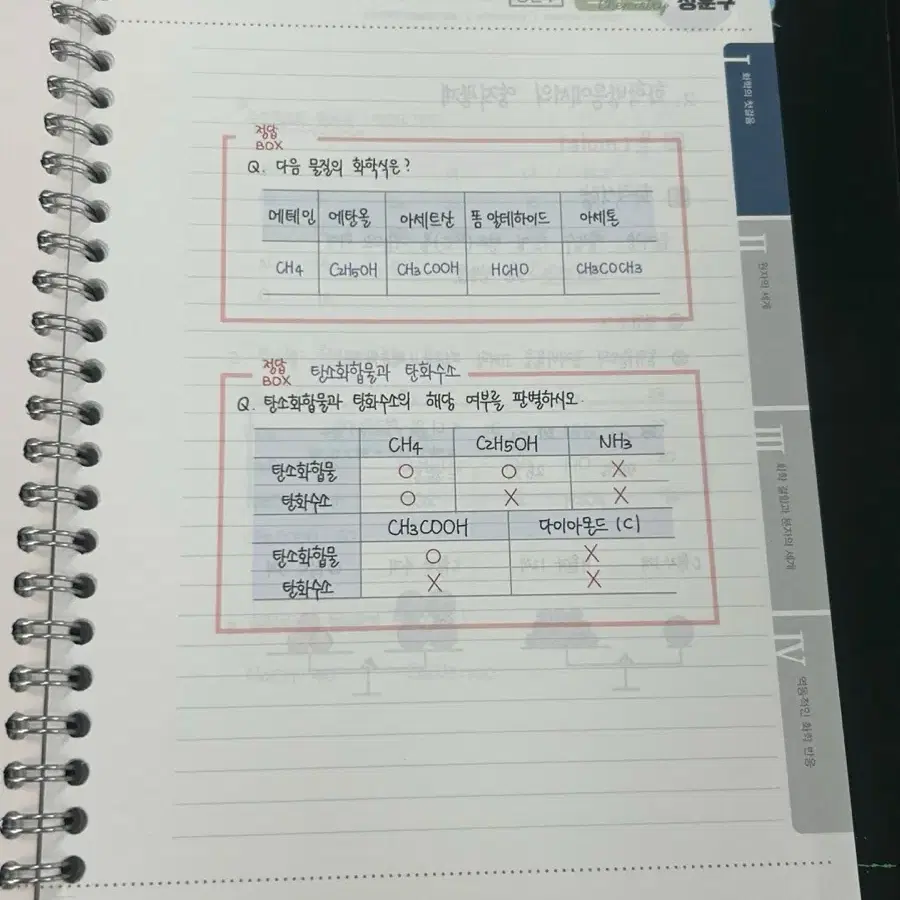 Chemistry 정훈구
I
화학의 첫걸음
정답
BOX
Q. 다음 물질의 화학식은?
메테인 에탄올 아세트산 폼알데하이드 아세톤
CH4 C2H5OH CH3COOH HCHO CH3COCH3
II
원자의 세계
정답
BOX 탄소화합물과 탄화수소
Q. 탄소화합물과 탄화수소의 해당 여부를 판별하시오.
CH4 C2H5OH NH3
탄소화합물 O O X
탄화수소 O X X
CH3COOH 다이아몬드 (C)
탄소화합물 O X
탄화수소 X X
III
화학 결합과 분자의 세계
IV
역동적인 화학 반응